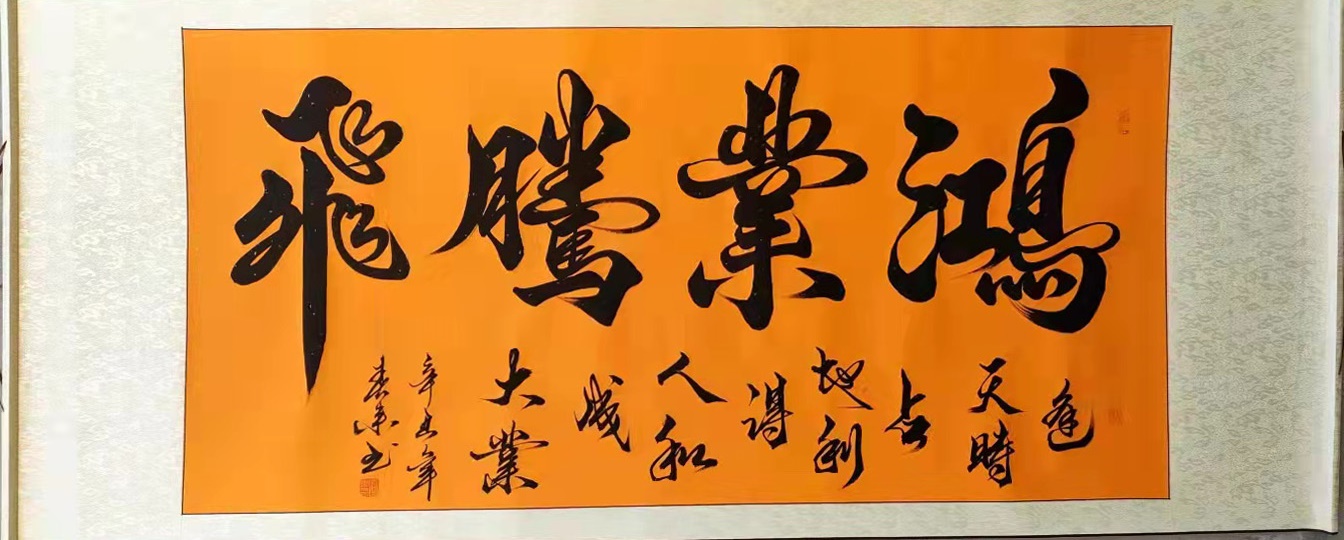 鴻業騰飛
逢
天時
占
地利
得
人和
成
大業
辛丑年